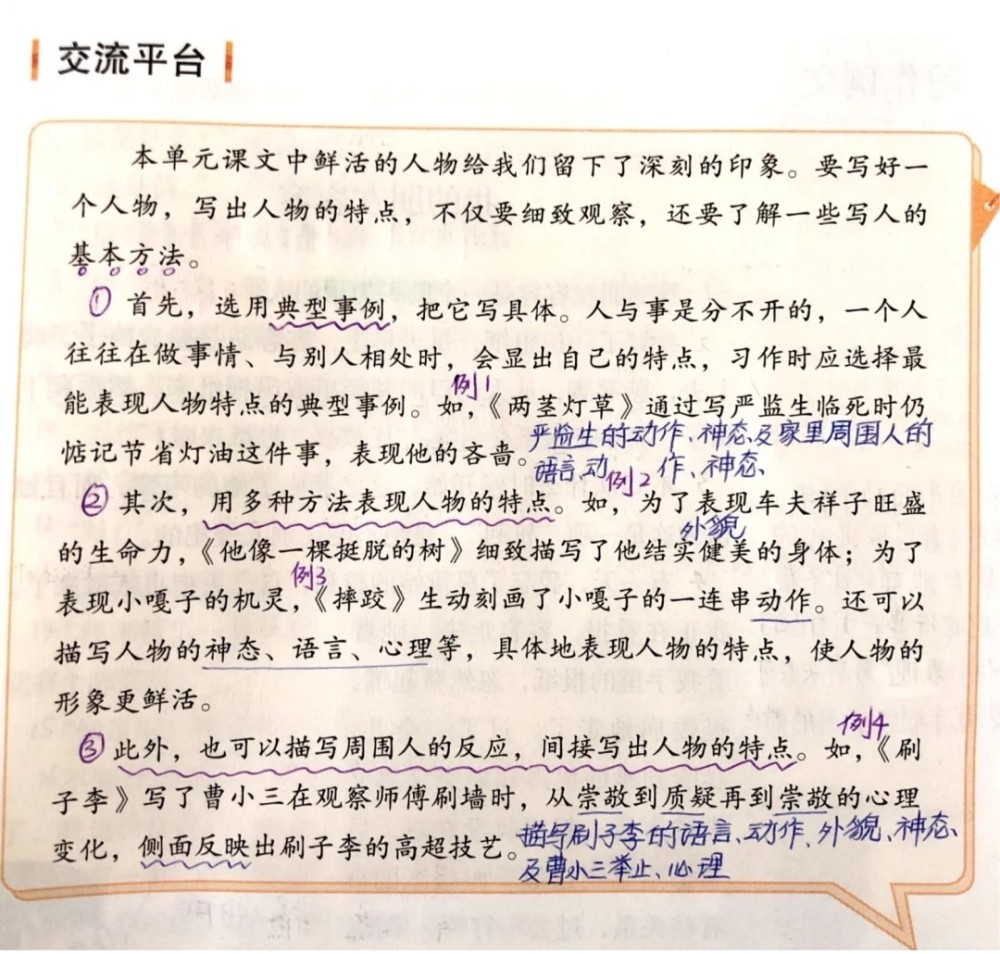 交流平台
本单元课文中鲜活的人物给我们留下了深刻的印象。要写好一
个人物，写出人物的特点，不仅要细致观察，还要了解一些写人的
基本方法。
① 首先，选用典型事例，把它写具体。人与事是分不开的，一个人
往往在做事情、与别人相处时，会显出自己的特点，习作时应选择最
例1
能表现人物特点的典型事例。如，《两茎灯草》通过写严监生临死时仍
严监生的动作、神态及家里周围人的
惦记节省灯油这件事，表现他的吝啬。
语言、动作、神态、
例2
② 其次，用多种方法表现人物的特点。如，为了表现车夫祥子旺盛
外貌
的生命力，《他像一棵挺脱的树》细致描写了他结实健美的身体；为了
例3
表现小嘎子的机灵，《摔跤》生动刻画了小嘎子的一连串动作。还可以
描写人物的神态、语言、心理等，具体地表现人物的特点，使人物的
形象更鲜活。
例4
③ 此外，也可以描写周围人的反应，间接写出人物的特点。如，《刷
子李》写了曹小三在观察师傅刷墙时，从崇敬到质疑再到崇敬的心理
变化，侧面反映出刷子李的高超技艺。
描写刷子李的语言、动作、外貌、神态、
及曹小三举止、心理